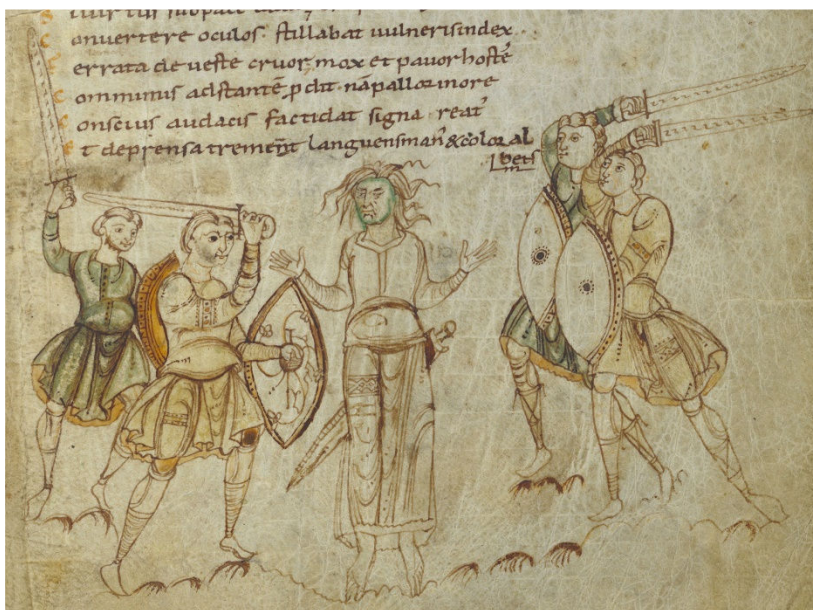 C onuertere oculos. stillabat uulnerisindex
errata de ueste cruor, mox et pauor hostē
C omminus adstantē ꝓdit. nāpallorinore
C onscius audacis factidat signa reat᾽
E t deprensa tremit languensman᾽ &color al
bet